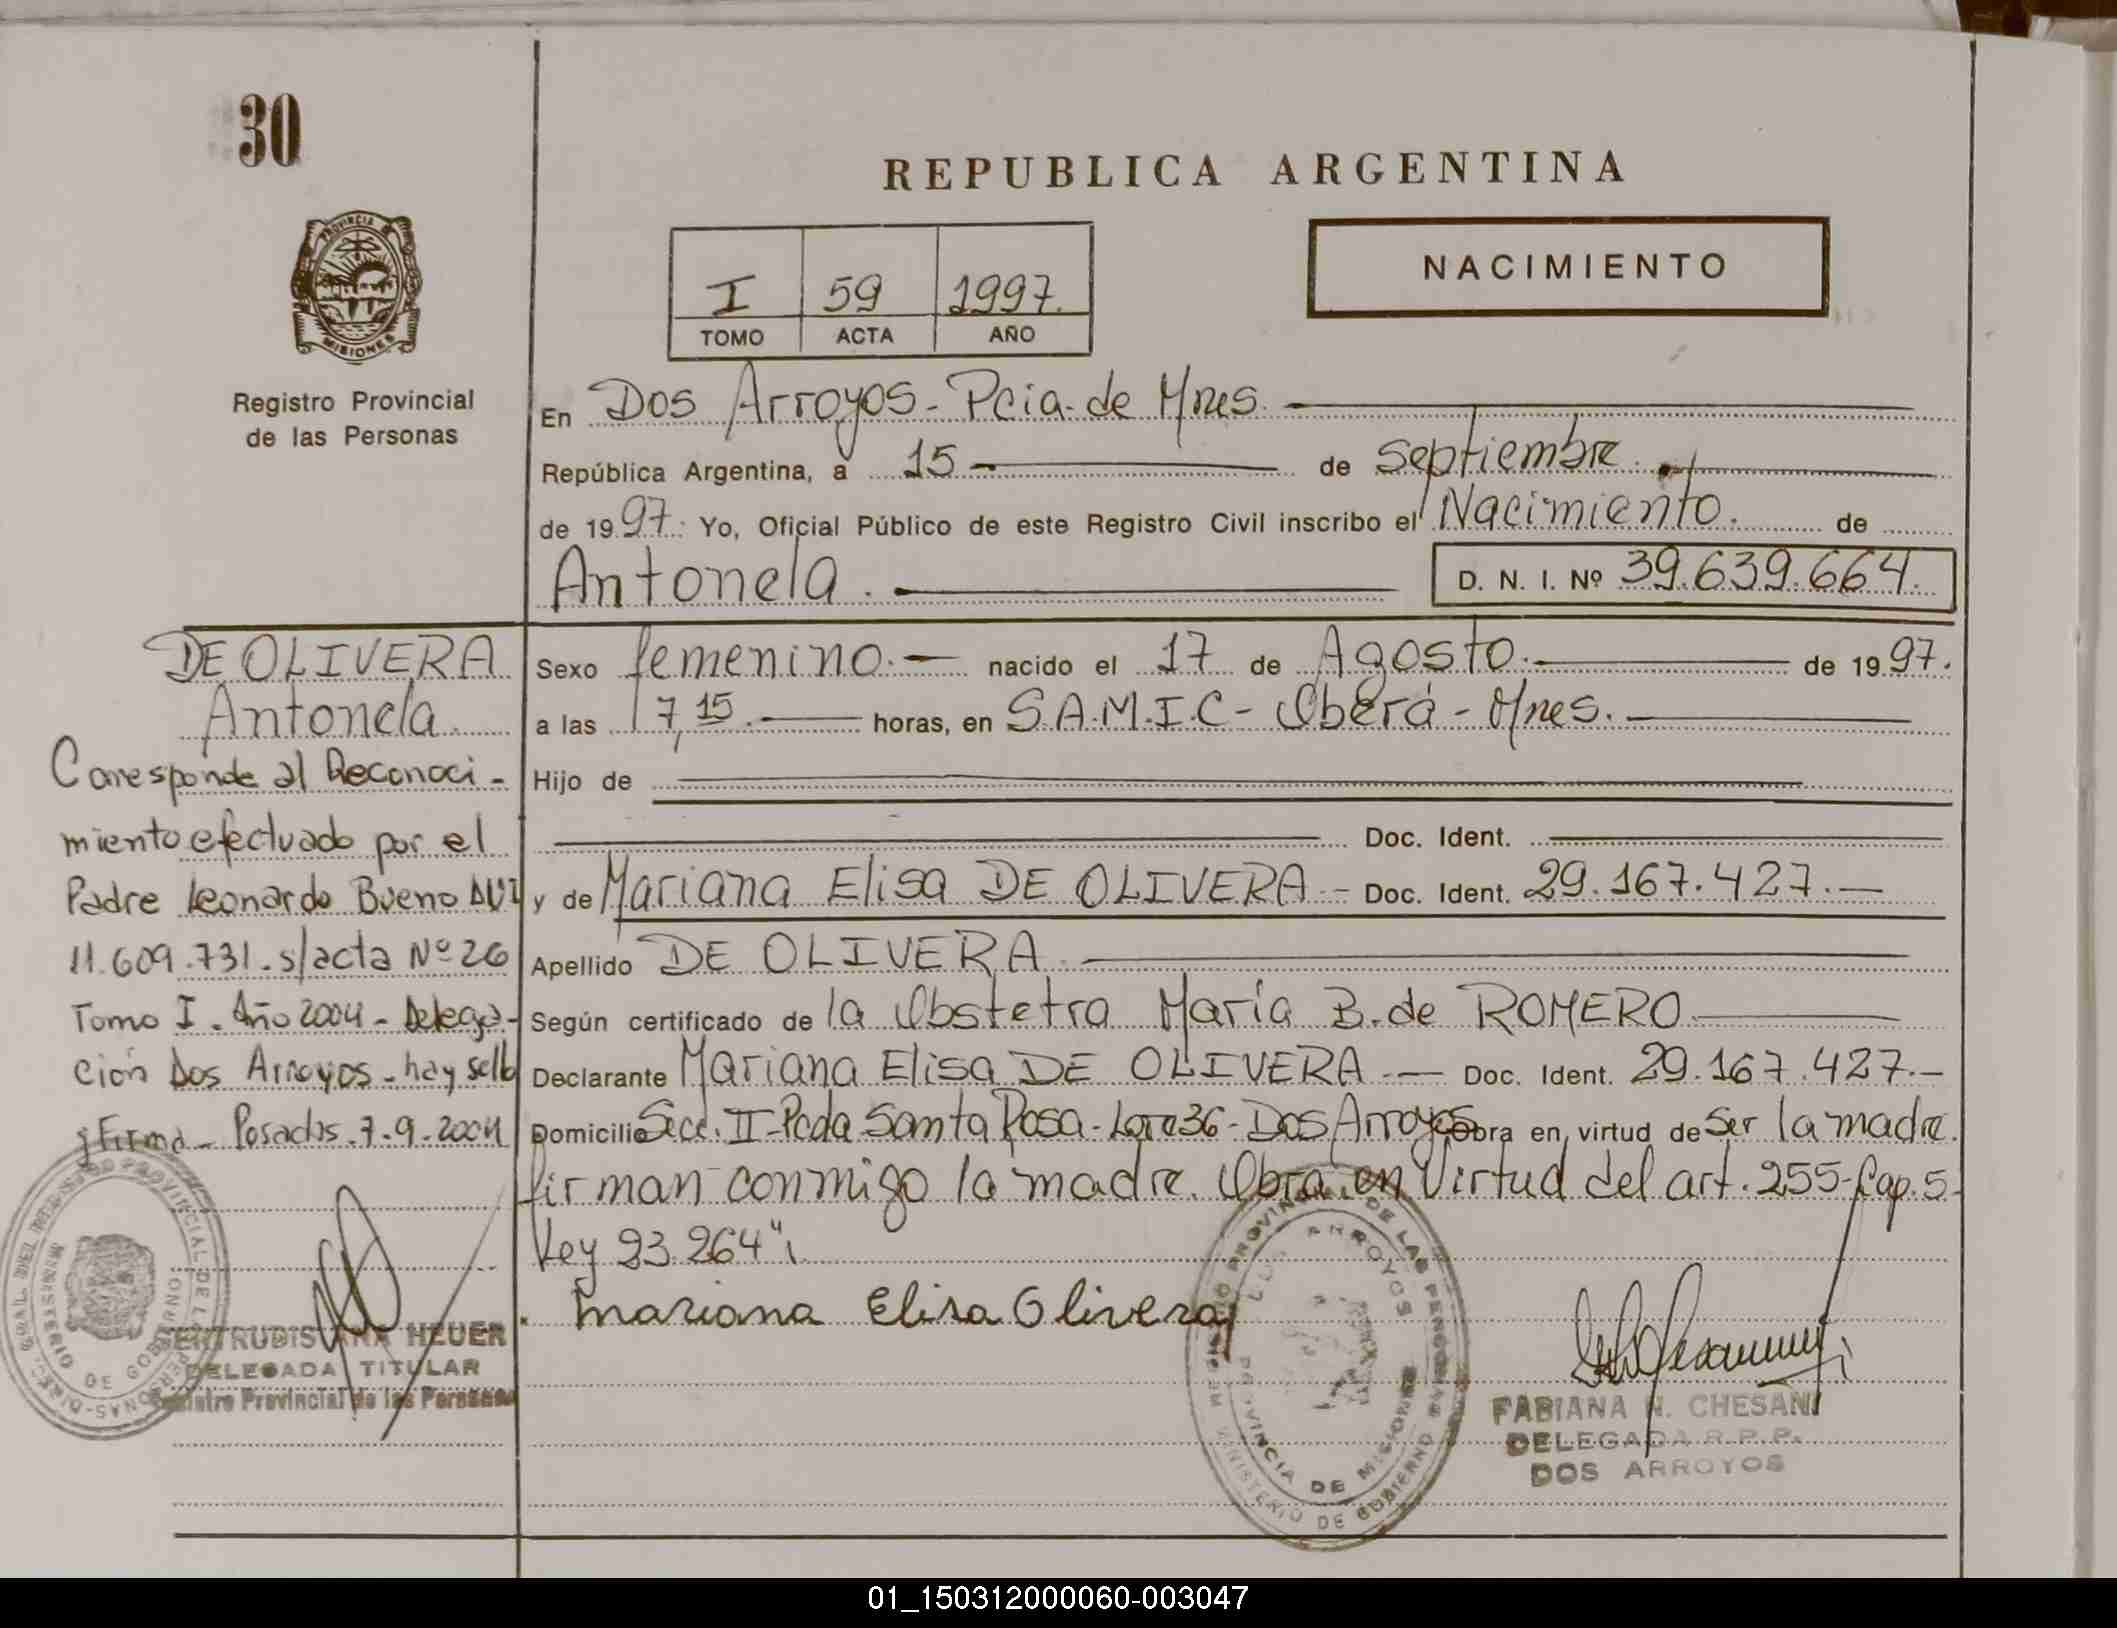 30
REPUBLICA ARGENTINA
NACIMIENTO
I 59 1997.
TOMO ACTA AÑO
PROVINCIA DE
MISIONES
Registro Provincial
de las Personas
En Dos Arroyos - Pcia. de Mnes.
República Argentina, a 15 de septiembre.
de 1997.: Yo, Oficial Público de este Registro Civil inscribo el Nacimiento. de
Antonela. D. N. I. Nº 39.639.664.
DE OLIVERA
Antonela.
Corresponde al Reconoci-
miento efectuado por el
Padre Leonardo Bueno DNI
11.609.731. s/acta Nº 26
Tomo I. Año 2004 - Delega-
ción Dos Arroyos - hay sello
y Firma - Posadas. 7-9-2004
Sexo femenino. nacido el 17 de Agosto. de 1997.
a las 17,15. horas, en S.A.M.I.C - Oberá - Mnes.
Hijo de
Doc. Ident.
y de Mariana Elisa DE OLIVERA - Doc. Ident. 29.167.427.-
Apellido DE OLIVERA.
Según certificado de la Obstetra María B. de ROMERO
Declarante Mariana Elisa DE OLIVERA.- Doc. Ident. 29.167.427.-
Domicilio Secc. II - Pcda Santa Rosa - Lote 36 - Dos Arroyos Obra en virtud de ser la madre.
firman conmigo la madre. Obra en Virtud del art. 255 - Cap. 5-
Ley 23.264"
Mariana Elisa Olivera
GERTRUDIS ANA HEUER
DELEGADA TITULAR
Registro Provincial de las Personas
FABIANA N. CHESANI
DELEGADA R.P.P.
DOS ARROYOS
01_150312000060-003047